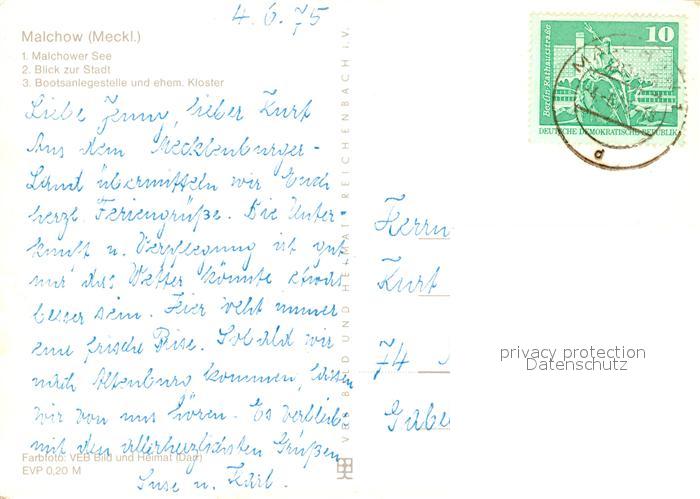 4.6.75
Malchow (Meckl.)
1. Malchower See
2. Blick zur Stadt
3. Bootsanlegestelle und ehem. Kloster
Liebe Jenny, lieber Kurt
Aus dem Mecklenburger-
Land übermitteln wir Euch
herzl. Feriengrüße. Die Unter-
kunft u. Verpflegung ist gut
nur das Wetter könnte etwas
besser sein. Hier weht immer
eine frische Brise. Sobald wir
nach Altenburg kommen, lassen
wir von uns hören. Es verbleib.
mit den allerherzlichsten Grüßen
Suse u. Karl.
Farbfoto: VEB Bild und Heimat (Darr)
EVP 0,20 M
VEB BILD UND HEIMAT REICHENBACH i. V.
10
Berlin-Rathausstraße
DEUTSCHE DEMOKRATISCHE REPUBLIK
d
Herrn
Kurt
74
Gabe
privacy protection
Datenschutz